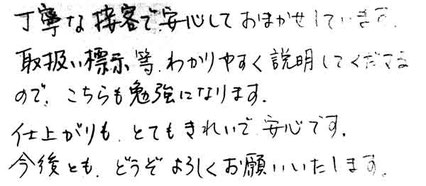 丁寧な接客で安心しておまかせしています。
取扱い標示等、わかりやすく説明してくださる
ので、こちらも勉強になります。
仕上がりも、とてもきれいで安心です。
今後とも、どうぞよろしくお願いいたします。